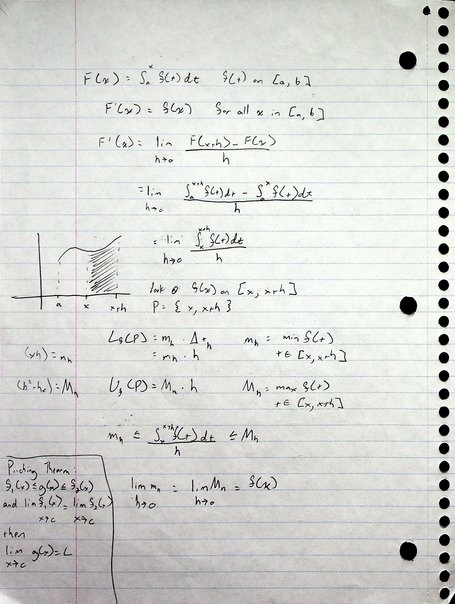 F(x) = ∫ₐˣ f(t) dt   f(t) on [a, b]
F'(x) = f(x)   for all x in [a, b]
F'(x) = lim h→0 (F(x+h) - F(x)) / h
= lim h→0 (∫ₐˣ⁺ʰ f(t) dt - ∫ₐˣ f(t) dt) / h
= lim h→0 (∫ₓˣ⁺ʰ f(t) dt) / h
a   x   x+h
look @ f(x) on [x, x+h]
P = { x, x+h }
L_f(P) = m_h · Δt_h   m_h = min f(t)
= m_h · h   t ∈ [x, x+h]
(xh) = m_h
U_f(P) = M_h · h   M_h = max f(t)
t ∈ [x, x+h]
m_h ≤ (∫ₓˣ⁺ʰ f(t) dt) / h ≤ M_h
lim h→0 m_h = lim h→0 M_h = f(x)
Pinching Theorem:
f₁(x) ≤ g(x) ≤ f₂(x)
and lim x→c f₁(x) = lim x→c f₂(x)
then
lim x→c g(x) = L